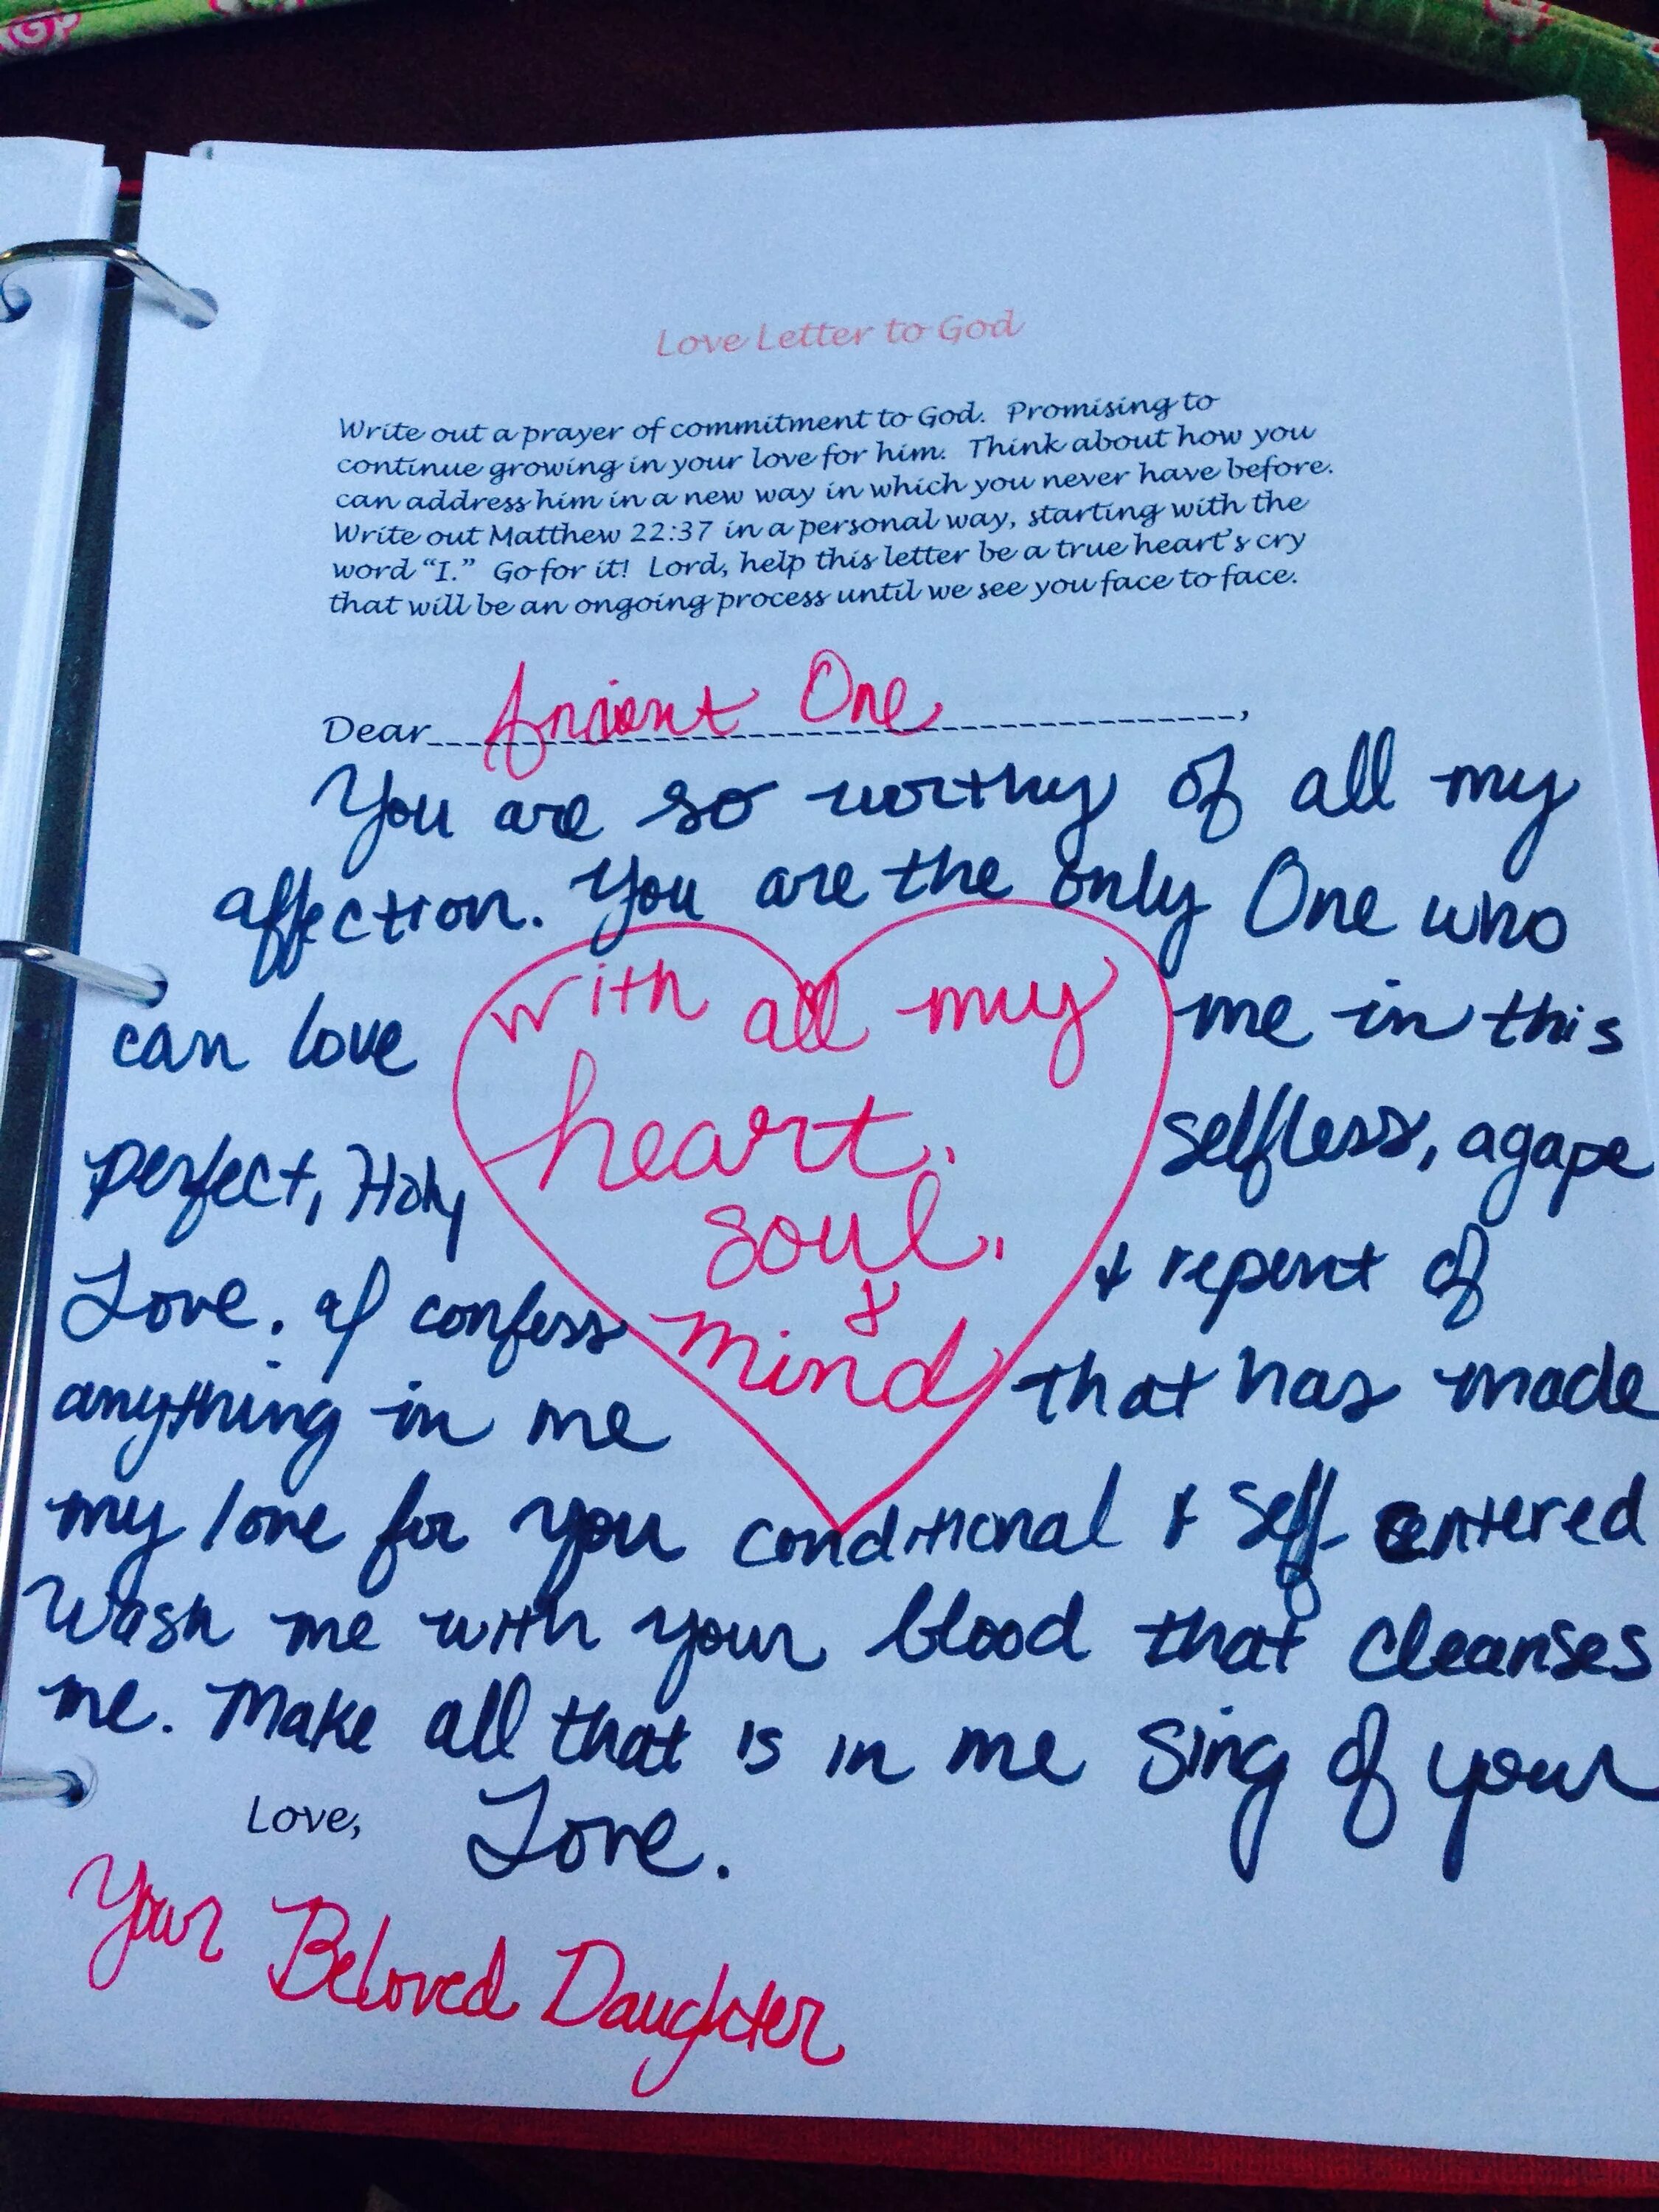 Love Letter to God
Write out a prayer of commitment to God. Promising to
continue growing in your love for him. Think about how you
can address him in a new way in which you never have before.
Write out Matthew 22:37 in a personal way, starting with the
word "I." Go for it! Lord, help this letter be a true heart's cry
that will be an ongoing process until we see you face to face.
Dear Ancient One,
You are so worthy of all my
affection. You are the only One who
can love me in this
perfect, Holy selfless, agape
Love. I confess & repent of
anything in me that has made
my love for you conditional & self-centered
Wash me with your blood that cleanses
me. Make all that is in me sing of your
Love.
with all my
heart,
soul,
&
mind
Love,
Your Beloved Daughter